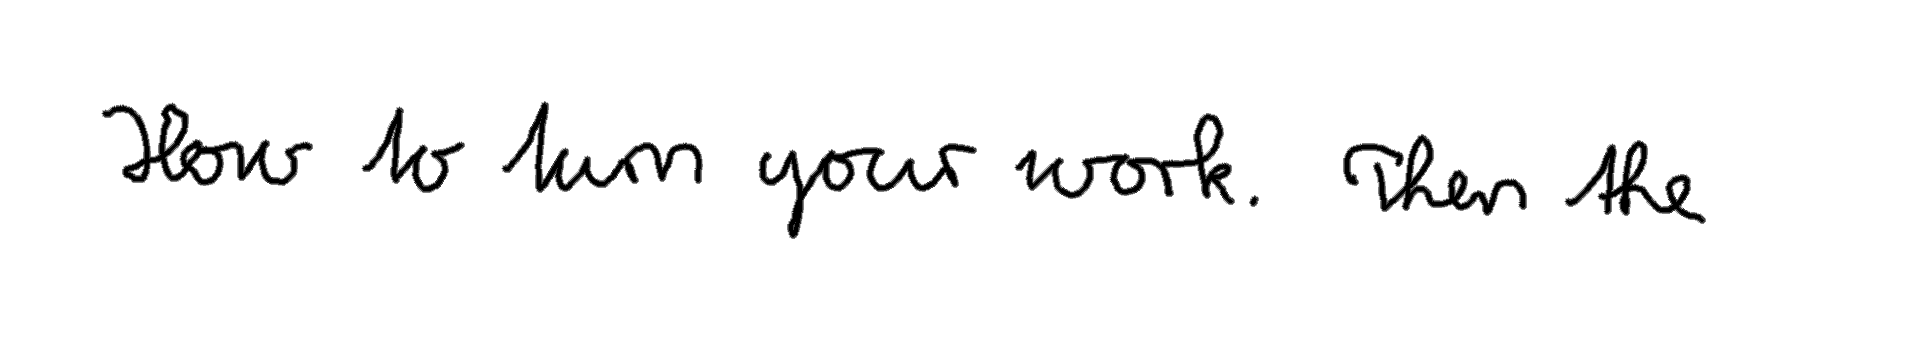 How to turn your work. Then the